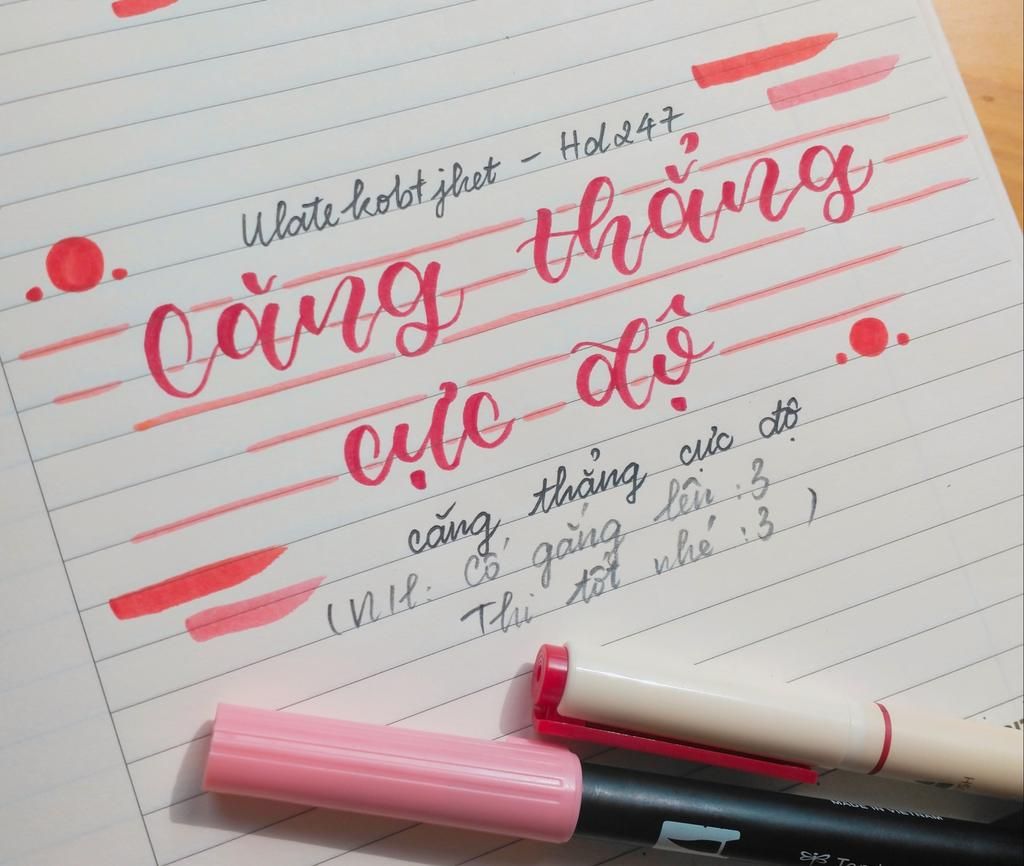 Ulatekobtjhet - Hd247
Căng thẳng
cực độ
căng thẳng cực độ
(NH: Cố gắng lên :3
Thi tốt nhé :3 )
MADE IN VIETNAM